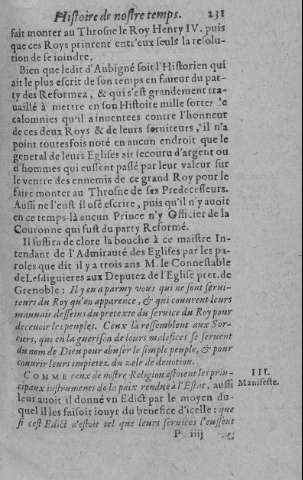 Histoire de nostre temps. 231
fait monter au Throsne le Roy Henry IV. puis
que ces Roys prinrent entr'eux seuls la resolu-
tion de se ioindre.
Bien que ledit d'Aubigné soit l'Historien qui
ait le plus escrit de son temps en faueur du par-
ty des Reformez, & qui s'est grandement tra-
uaillé à mettre en son Histoire mille sortes de
calomnies qu'il a inuentees contre l'honneur
de ces deux Roys & de leurs seruiteurs, il n'a
point toutesfois noté en aucun endroit que le
general de leurs Eglises ait secouru d'argent ou
d'hommes qui eussent passé par leur valeur sur
le ventre des ennemis de ce grand Roy pour le
faire monter au Throsne de ses Predecesseurs.
Aussi ne l'eust il osé escrire, puis qu'il n'y auoit
en ce temps-là aucun Prince n'y Officier de la
Couronne qui fust du party Reformé.
Il suffira de clore la bouche à ce maistre In-
tendant de l'Admirauté des Eglises par les pa-
roles que dit il y a trois ans M. le Connestable
de Lesdiguieres aux Deputez de l'Eglise pret. de
Grenoble: Il y en a parmy vous qui ne sont serui-
teurs du Roy qu'en apparence, & qui couurent leurs
mauuais desseins du pretexte du seruice du Roy pour
deceuoir les peuples. Ceux là ressemblent aux Sor-
ciers, qui en la guerison de leurs malefices se seruent
du nom de Dieu pour abuser le simple peuple, & pour
couurir leurs impietez du zele de deuotion.
COMME ceux de nostre Religion estoient les prin-
cipaux instruments de la paix renduë à l'Estat, aussi
III.
Manifeste.
leur auoit il donné vn Edict par le moyen du-
quel il les faisoit iouyr du benefice d'icelle: que
si cest Edict n'estoit tel que leurs seruices l'eussent
P iiij